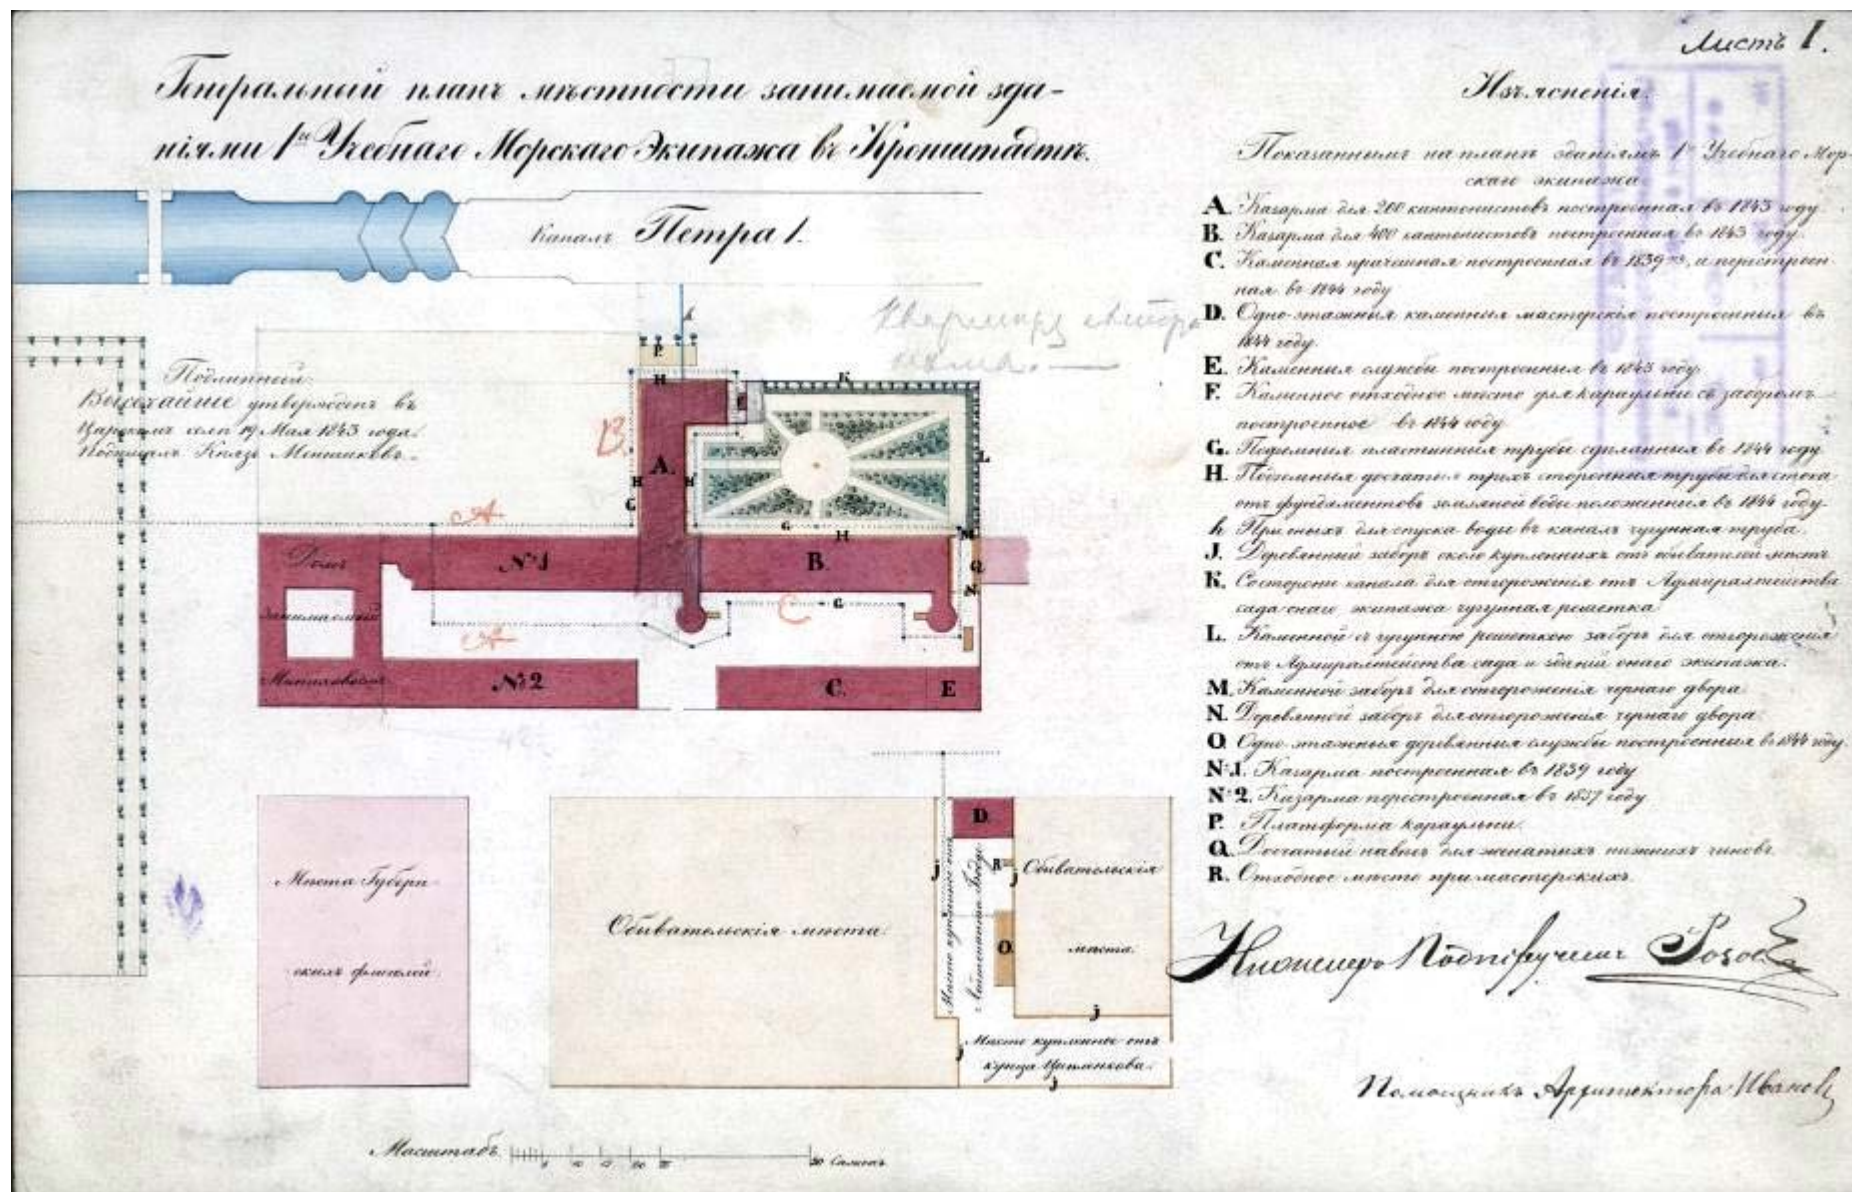 Листъ 1.
Генральный планъ мѣстности занимаемой зда-
ніями 1го Учебнаго Морскаго Экипажа въ Кронштадтѣ.
Каналъ Петра 1.
Подлинный
Высочайше утвержденъ въ
Царскомъ селѣ 19 Мая 1843 года.
Подписалъ Князь Меншиковъ.
h
P.
H
K
B.
A.
L
H
H
G
G
A
H
M
Домъ
№1
B.
Q
N
занимаемый
G
C
A
№2
C.
E
D.
J
R
J
Обывательскія
Мѣста Губерн-
Обывательскія мѣста.
O.
мѣста.
скихъ флигелей.
j
Мѣсто купленное отъ
J
купца
J
Масштабъ
20 Саженъ
Изъясненія.
Показаннымъ на планѣ зданіямъ 1го Учебнаго Мор-
скаго экипажа
A. Казарма для 200 кантонистовъ построенная въ 1843 году.
B. Казарма для 400 кантонистовъ построенная въ 1843 году.
C. Каменная прачешная построенная въ 1839мъ, и перестроен-
ная въ 1844 году
D. Одно-этажныя каменныя мастерскія построенныя въ
1844 году.
E. Каменныя службы построенныя въ 1843 году.
F. Каменное отхожее мѣсто для караульни съ заборомъ
построенное въ 1844 году
G. Подземныя пластинныя трубы сдѣланныя въ 1844 году
H. Подземныя досчатыя трехъ сторонныя трубы для стока
отъ фундаментовъ земляной воды положенныя въ 1844 году.
h При оныхъ для спуска воды въ каналъ чугунная труба.
J. Деревянный заборъ около купленныхъ отъ обывателей мѣстъ
K. Состороны канала для отгорожденія отъ Адмиралтейства
сада онаго экипажа чугунная решетка
L. Каменной съ чугунною решеткою заборъ для отгорожденія
отъ Адмиралтейства сада и зданій онаго экипажа.
M. Каменной заборъ для отгорожденія чернаго двора.
N. Деревянной заборъ для отгорожденія чернаго двора.
O. Одно-этажныя деревянныя службы построенныя въ 1844 году.
№1. Казарма построенная въ 1839 году
№2. Казарма перестроенная въ 1837 году
P. Платформа караульни.
Q. Досчатый навѣсъ для женатыхъ нижнихъ чиновъ.
R. Отхожее мѣсто при мастерскихъ.
Инженеръ Подпоручикъ
Помощникъ Архитектора Ивановъ